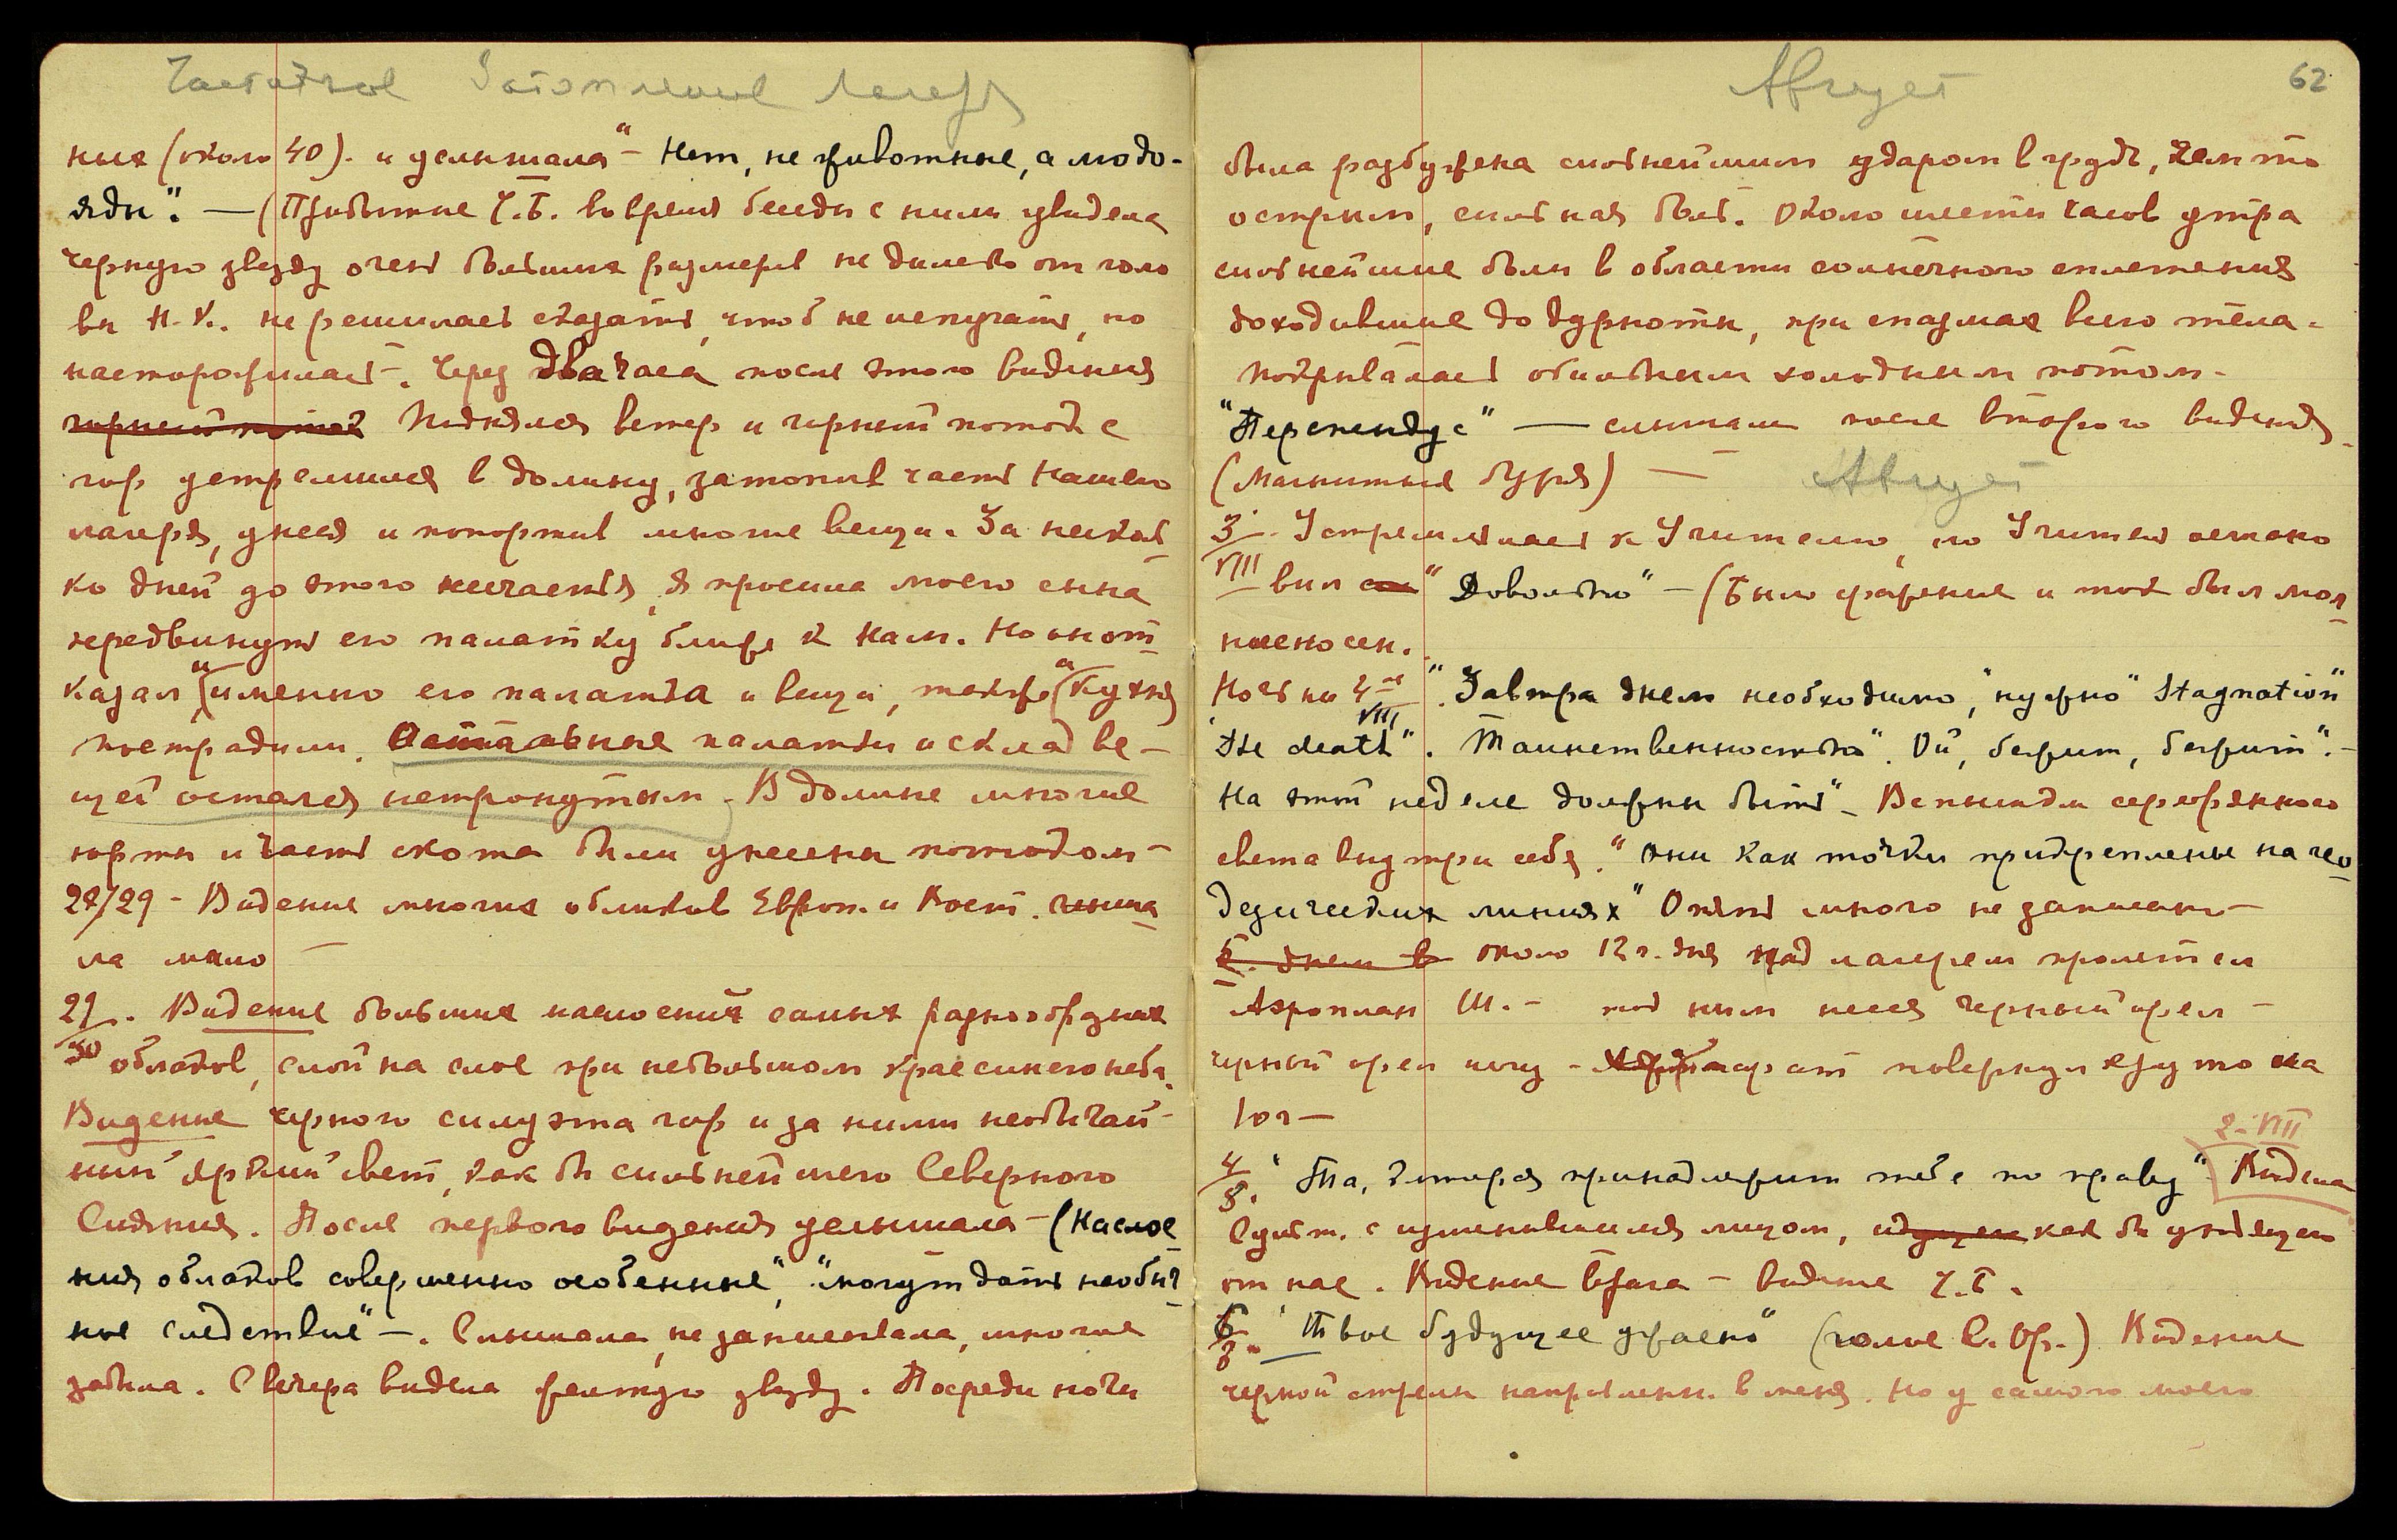 Частичное Затопление Лагеря
них (около 40). и услышала "– Нет, не животные, а людо-
яды". — (Прибытие Ч.Б. во время беседы с ними увидела
черную звезду очень больших размеров не далеко от голо
вы Н.К. не решилась сказать, чтоб не испугать, но
насторожилась –. Через два часа после этого видения
горный поток Поднялся ветер и горный поток с
гор устремился в долину, затопив часть нашего
лагеря, унеся и попортив многие вещи. За несколь
ко дней до этого несчастья, я просила моего сына
передвинуть его палатку ближе к нам. Но он от
казал, "(именно его палатка и вещи, также "(кухня
пострадали. Остальные палатки и склад ве-
щей остался нетронутым. В долине многие
юрты и часть скота были унесены потоком –
28/29 - Видение многих обликов Европ. и Вост.
ла мало —
29/30. Видение больших наслоений самых разнообразных
облаков, слой на слое при небольшом крае синего неба.
Видение черного силуэта гор и за ними необычай-
ный яркий свет, как бы сильнейшего Северного
Сияния. После первого видения услышала – (Наслое
ния облаков совершенно особенные", "могут дать необыч
ные следствие" –. Слышала, не записывала, многие
забыла. С вечера видела желтую звезду. Посреди ночи
Август
62
была разбужена сильнейшим ударом в грудь, чем то
острым, сильная боль. Около шести часов утра
сильнейшие боли в области солнечного сплетения
доходившие до дурноты, при спазмах всего тела.
покрывалась обильным холодным потом.
"Перепендус" — слышали после второго видения
(Магнитная буря) —
Август
3/VIII. Устремлялась к Учителю, но Учитель остано
вил "Довольно" – (Было жжение и ток был мол
ниеносен.
Ночь на 4ое VIII. "Завтра днем необходимо, "нужно" Stagnation"
"The death". Таинственность". Ой, бежит, бежит". –
На этой неделе должны быть" – Вспышки серебряного
света внутри себя. "они как точки прикреплены на гео
дезических линиях" Опять много не записано –
5. днем в около 12 ч. дня над лагерем пролетел
Аэроплан Ш. – под ним несся черный орел –
черный орел аппарат повернул круто на
юг —
2-VIII
4/8. "Та, которая принадлежит тебе по праву" Видела
с изменившимся лицом, идущем как бы уходящего
от нас. Видение врага – видите Ч.Б.
6/8. "Твое будущее ужасно" (голос В. Ор.) Видение
черной стрелы направленн. в меня. Но у самого моего